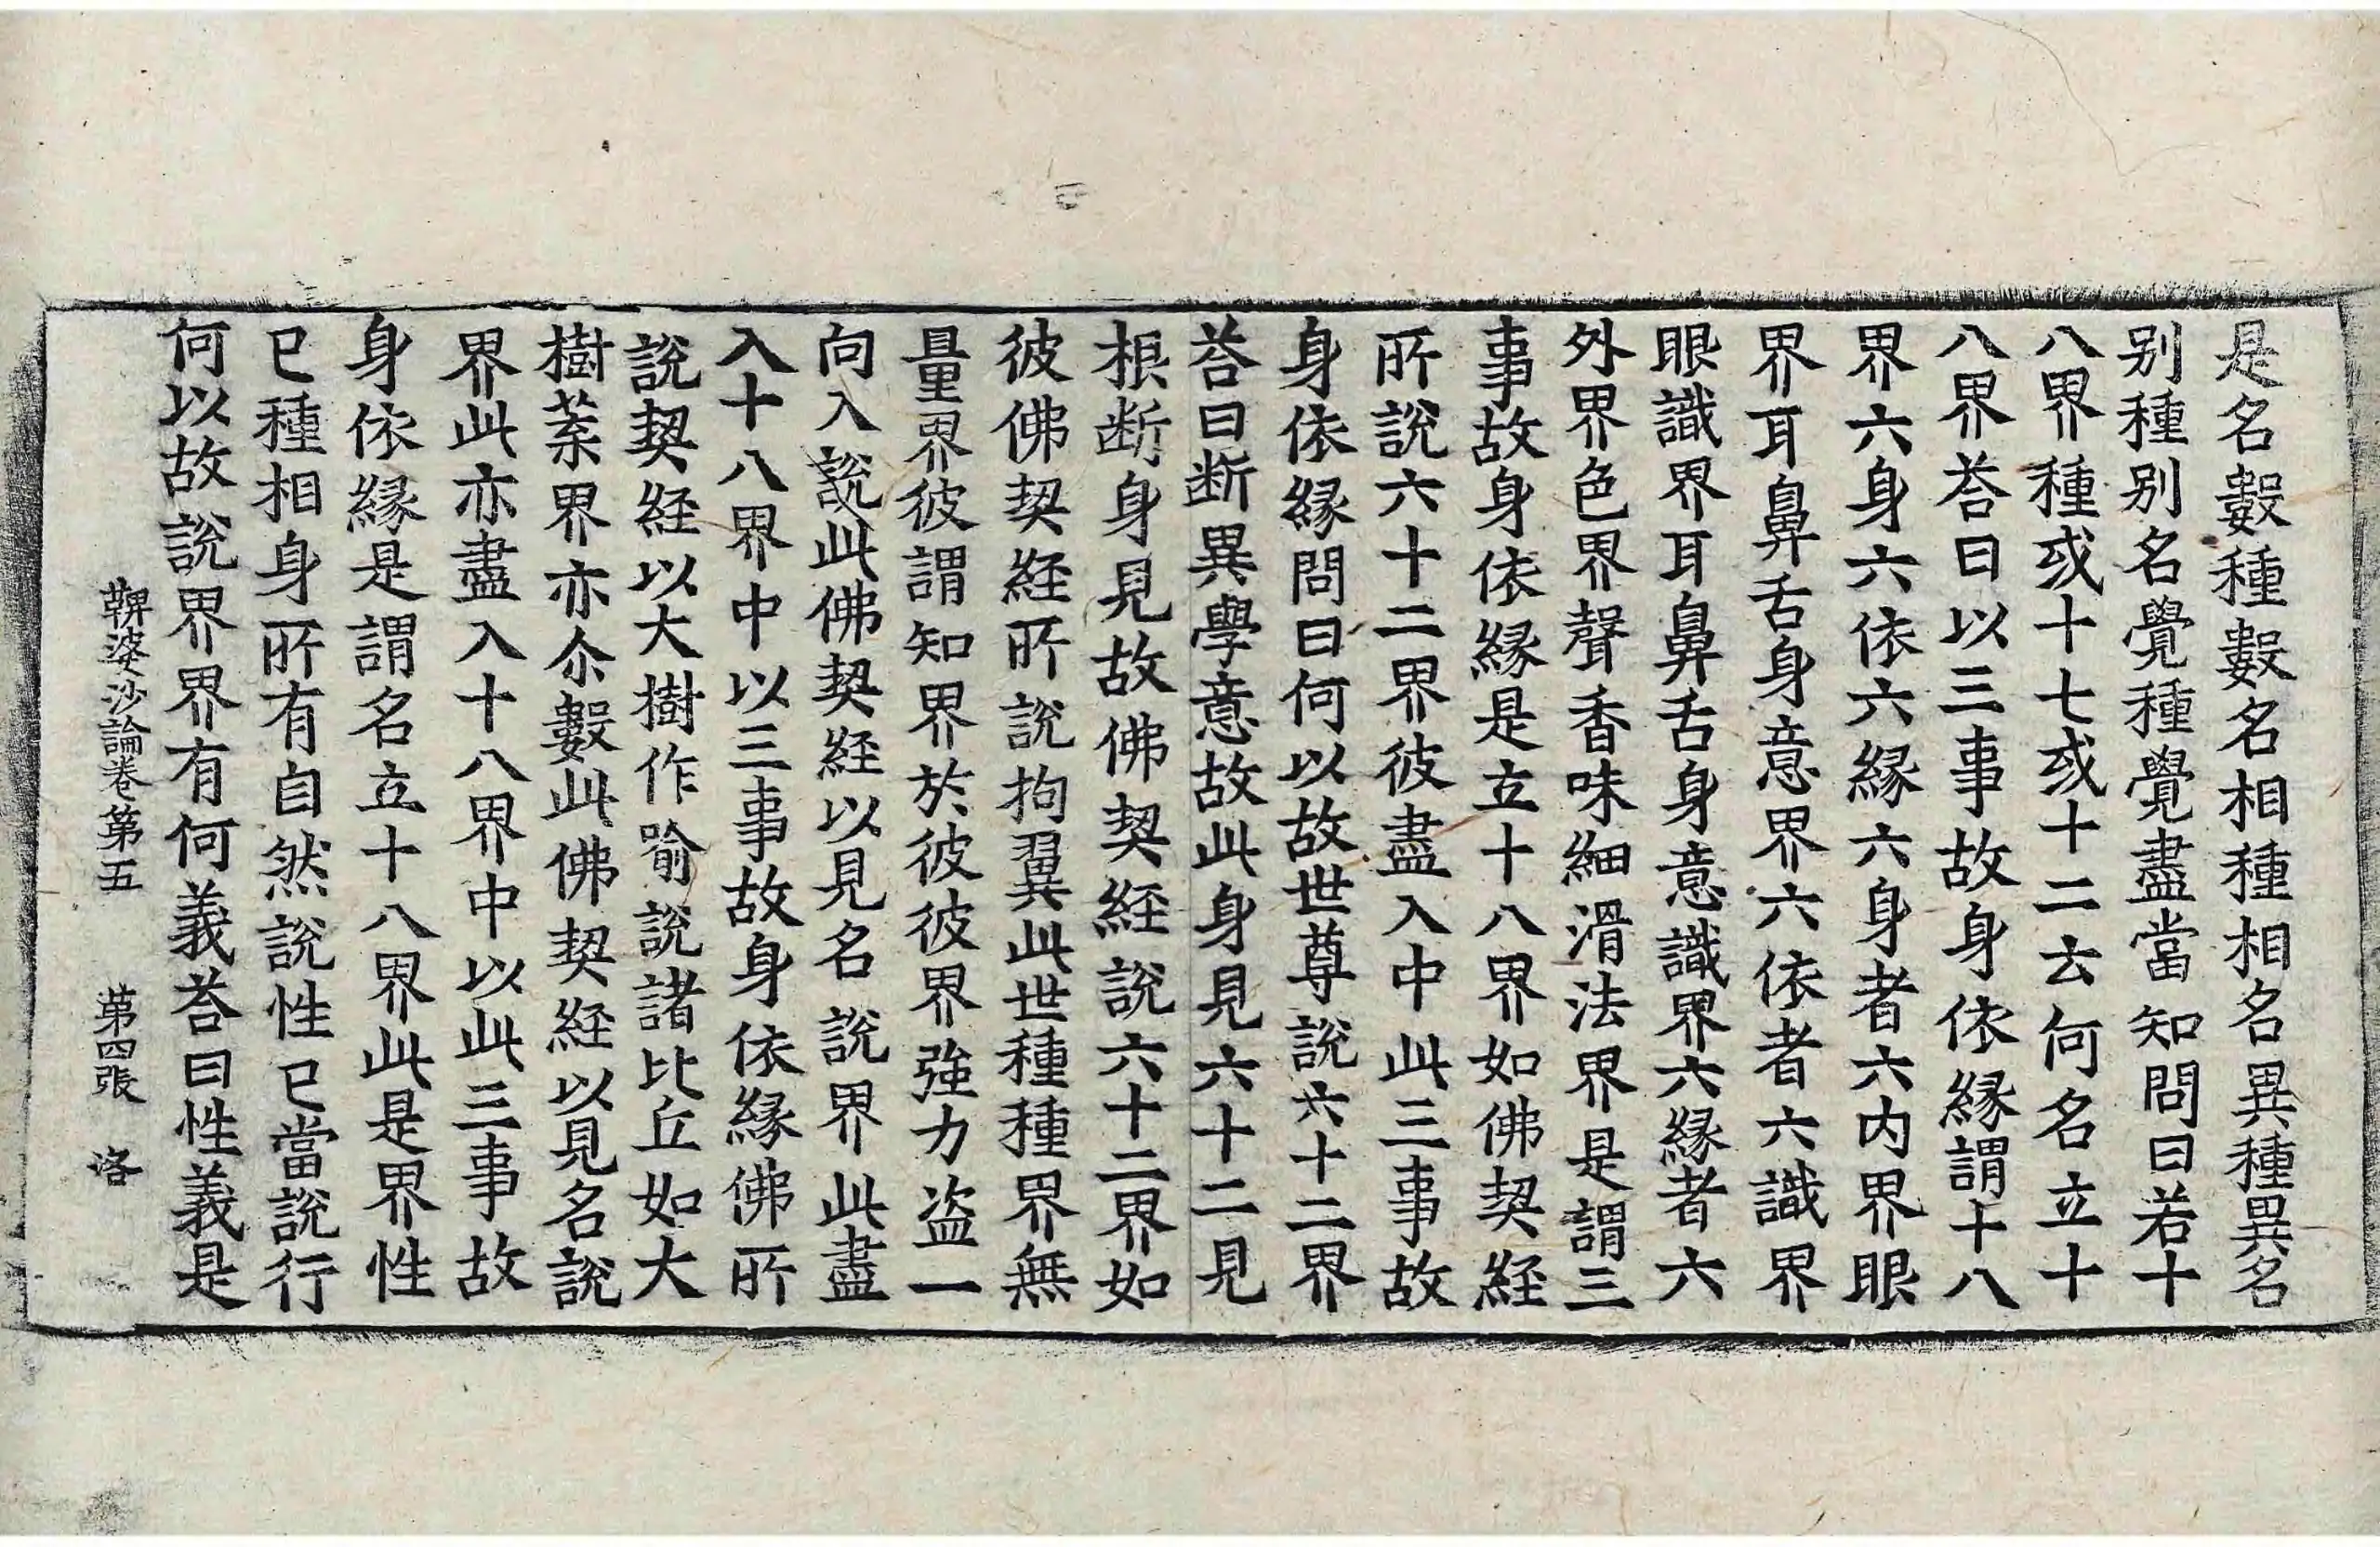 是名數種數名相種相名異種異名
别種别名覺種覺盡當知問曰若十
八界種或十七或十二云何名立十
八界荅曰以三事故身依縁謂十八
界六身六依六縁六身者六内界眼
界耳鼻舌身意界六依者六識界
眼識界耳鼻舌身意識界六縁者六
外界色界聲香味細滑法界是謂三
事故身依縁是立十八界如佛契經
所說六十二界彼盡入中此三事故
身依縁問曰何以故世尊說六十二界
荅曰断異學意故此身見六十二見
根断身見故佛契經說六十二界如
彼佛契経所說拘翼此世種種界無
量界彼謂知界於彼彼界強力盗一
向入說此佛契経以見名說界此盡
入十八界中以三事故身依縁佛所
說契経以大樹作喻說諸比丘如大
樹藂界亦尒數此佛契経以見名說
界此亦盡入十八界中以此三事故
身依縁是謂名立十八界此是界性
已種相身所有自然說性已當說行
何以故說界界有何義荅曰性義是
鞞婆沙論卷第五 第四張 洛